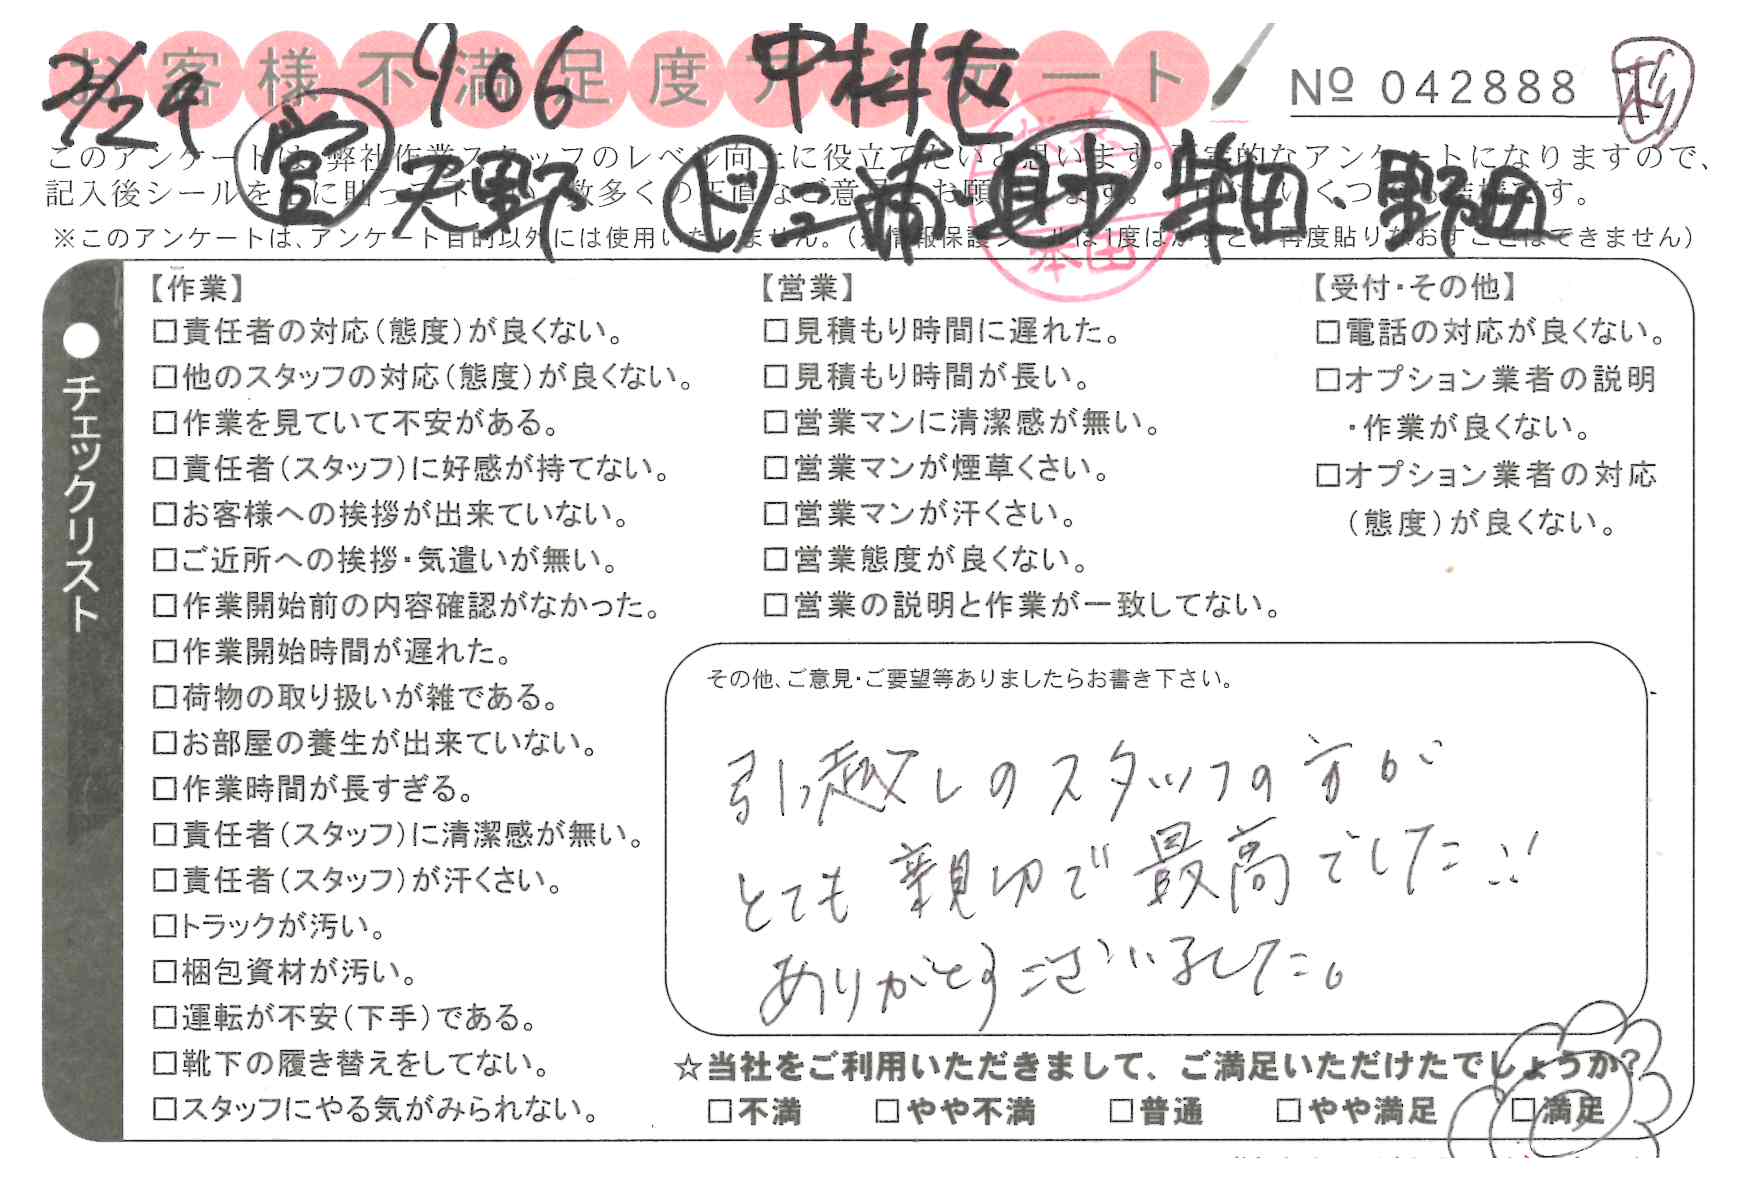 お客様不満足度アンケート
2/24 906 中村
No 042888
杉
このアンケートは、弊社作業スタッフのレベル向上に役立てたいと思います。 的なアンケートになりますので、
記入後シールを に貼って下さい。数多くの正直なご意見をお願 ます。 いくつ です。
営 天野 ド 三浦 助 峯田、野田
※このアンケートは、アンケート目的以外には使用いたしません。( 情報保護シールは1度はがすと、再度貼りなおすことはできません)
本田
●チェックリスト
【作業】
□責任者の対応(態度)が良くない。
□他のスタッフの対応(態度)が良くない。
□作業を見ていて不安がある。
□責任者(スタッフ)に好感が持てない。
□お客様への挨拶が出来ていない。
□ご近所への挨拶・気遣いが無い。
□作業開始前の内容確認がなかった。
□作業開始時間が遅れた。
□荷物の取り扱いが雑である。
□お部屋の養生が出来ていない。
□作業時間が長すぎる。
□責任者(スタッフ)に清潔感が無い。
□責任者(スタッフ)が汗くさい。
□トラックが汚い。
□梱包資材が汚い。
□運転が不安(下手)である。
□靴下の履き替えをしてない。
□スタッフにやる気がみられない。
【営業】
□見積もり時間に遅れた。
□見積もり時間が長い。
□営業マンに清潔感が無い。
□営業マンが煙草くさい。
□営業マンが汗くさい。
□営業態度が良くない。
□営業の説明と作業が一致してない。
【受付・その他】
□電話の対応が良くない。
□オプション業者の説明
・作業が良くない。
□オプション業者の対応
(態度)が良くない。
その他、ご意見・ご要望等ありましたらお書き下さい。
引っ越しのスタッフの方が
とても親切で最高でした!!
ありがとうございました。
☆当社をご利用いただきまして、ご満足いただけたでしょうか?
□不満 □やや不満 □普通 □やや満足 □満足